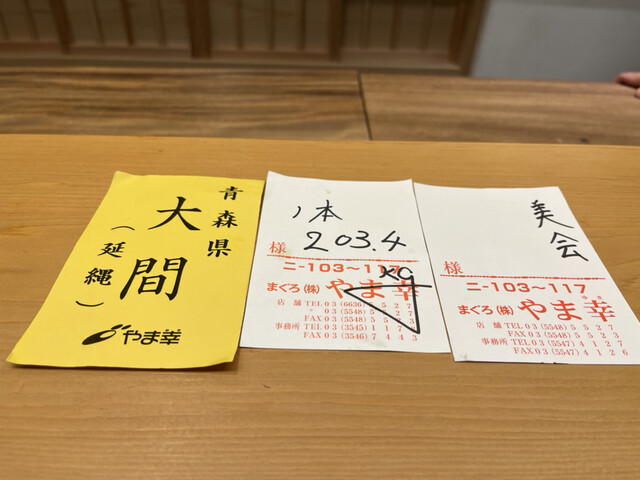 青森県
大間
(延縄)
やま幸
1本
203.4
kg
様
ニ-103~117
まぐろ(株)やま幸
店舗 TEL 03 (6636) 5 5 2 7
〃 03 (5548) 5 5 2 7
FAX 03 (5548) 5 5 2 3
事務所 TEL 03 (3545) 1 1 7
FAX 03 (3546) 7 4 4 3
美会
様
ニ-103~117
まぐろ(株)やま幸
店舗 TEL 03 (5548) 5 5 2 7
FAX 03 (5548) 5 5 2 3
事務所 TEL 03 (5547) 4 1 2 7
FAX 03 (5547) 4 1 2 6